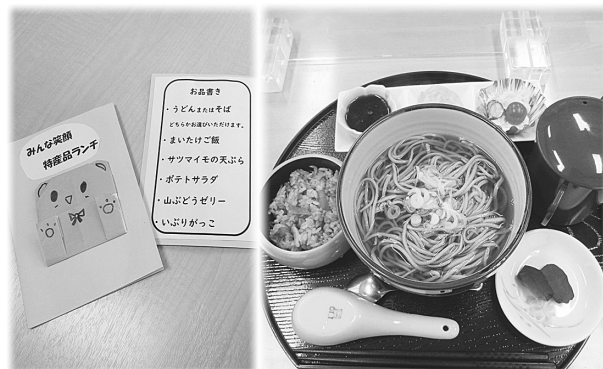 みんな笑顔
特産品ランチ
お品書き
・うどんまたはそば
どちらかお選びいただけます。
・まいたけご飯
・サツマイモの天ぷら
・ポテトサラダ
・山ぶどうゼリー
・いぶりがっこ